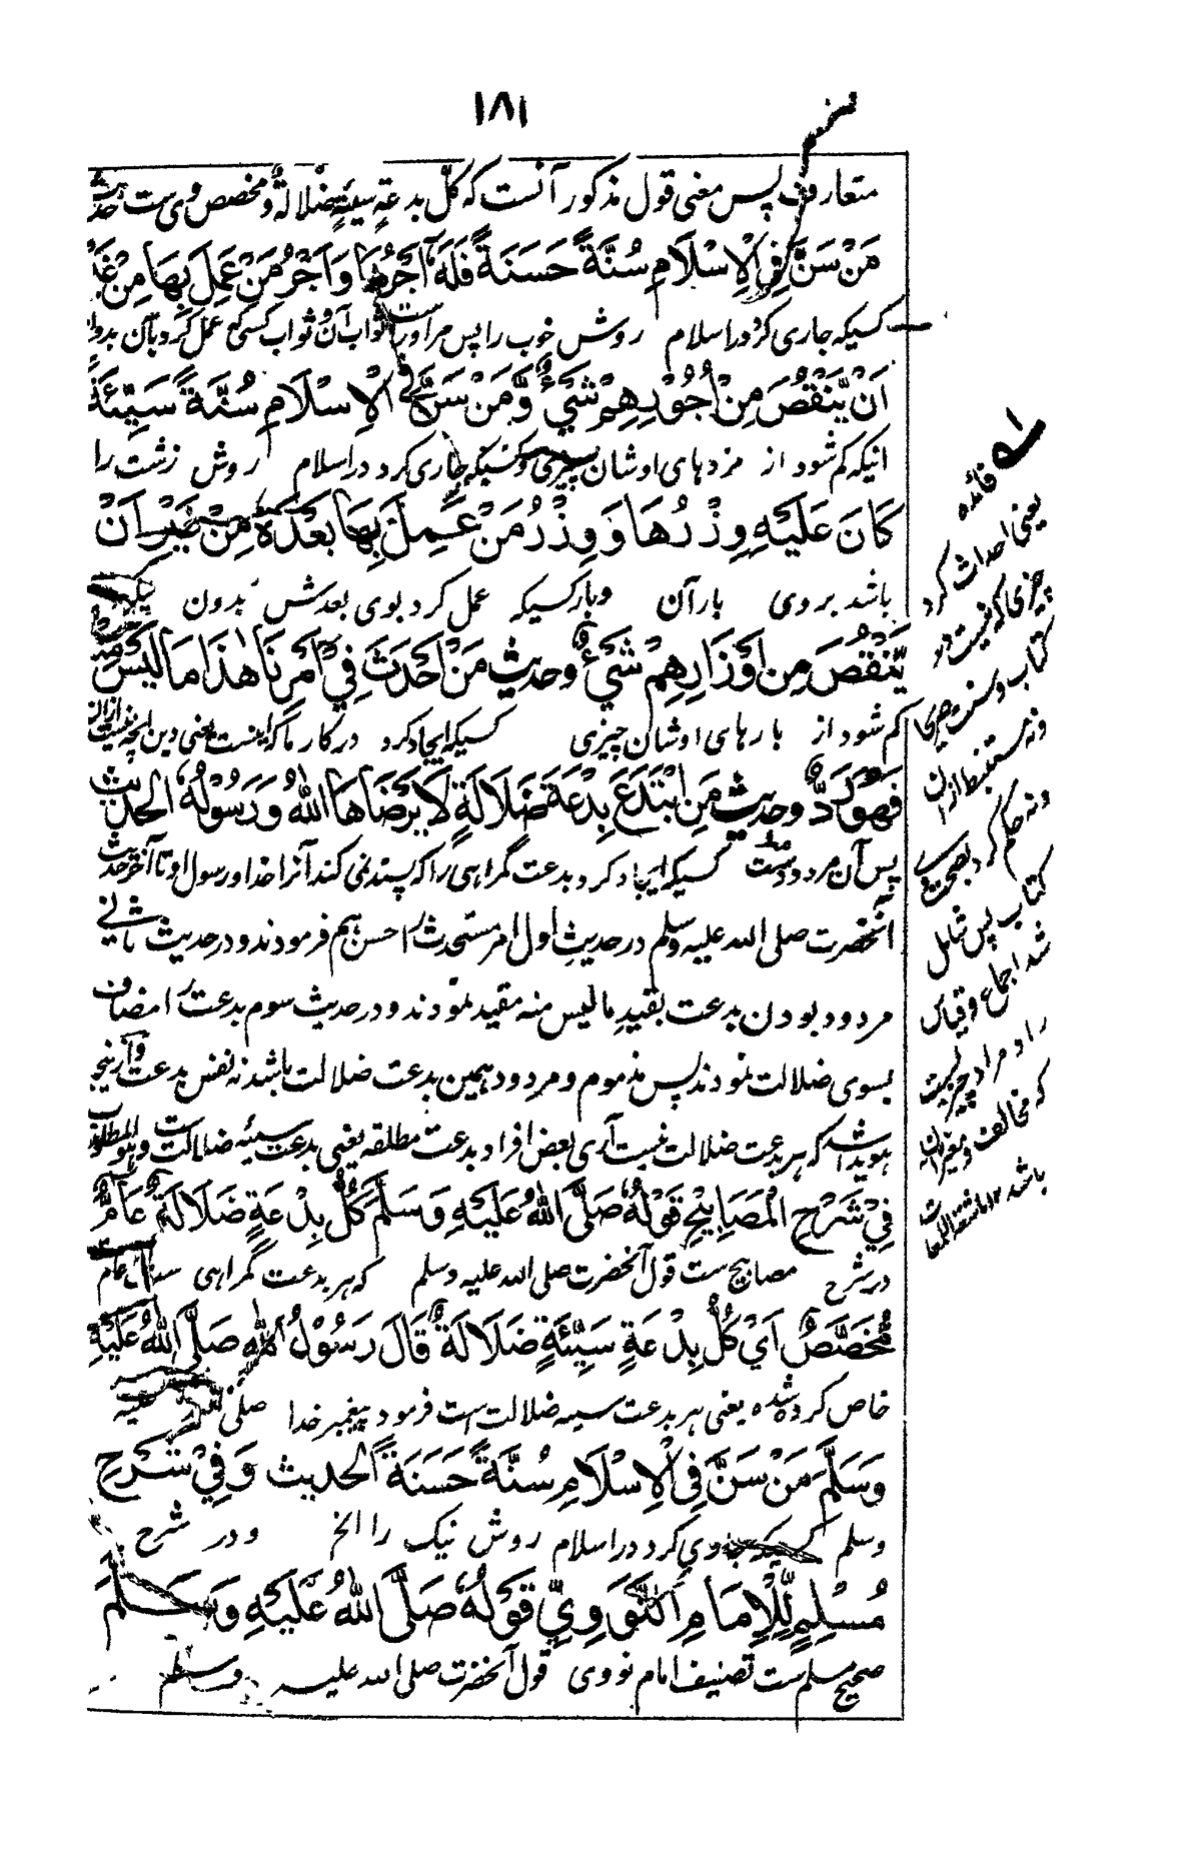 ۱۸۱
متعارف پس معنی قول مذکور آنست که کلّ بدعةٍ سیئةٍ ضلالةٌ و مخصص وی ست حدیث
مَنْ سَنَّ فِی الْاِسْلَامِ سُنَّةً حَسَنَةً فَلَهٗ اَجْرُهَا وَ اَجْرُ مَنْ عَمِلَ بِهَا مِنْ غَیْرِ
کسیکه جاری کرد در اسلام روش خوب را پس مر او راست ثواب آن و ثواب کسی که عمل کرد بآن بدون
اَنْ یَّنْقُصَ مِنْ اُجُوْرِهِمْ شَیْءٌ وَّ مَنْ سَنَّ فِی الْاِسْلَامِ سُنَّةً سَیِّئَةً
اینکه کم شود از مزدهای اوشان چیزی و کسیکه جاری کرد در اسلام روش زشت را
کَانَ عَلَیْهِ وِزْرُهَا وَ وِزْرُ مَنْ عَمِلَ بِهَا بَعْدَهٗ مِنْ غَیْرِ اَنْ
باشد بر وی بار آن و بار کسیکه عمل کرد بوی بعدش بدون
یَّنْقُصَ مِن اَوْزَارِهِمْ شَیْءٌ وحدیث مَنْ اَحْدَثَ فِیْ اَمْرِنَا هٰذَا مَا لَیْسَ مِنْهُ
کم شود از بارهای اوشان چیزی کسیکه ایجاد کرد در کار ما که اینست یعنی دین آنچه نیست ازان
فَهُوَ رَدٌّ وحدیث مَنِ ابْتَدَعَ بِدْعَةَ ضَلَالَةٍ لَا یَرْضَاهَا اللهُ وَ رَسُوْلُهُ الحدیث
پس آن مردودست کسیکه ایجاد کرد بدعت گمراهی را که پسند نمی کند آنرا خدا و رسول او تا آخر حدیث
آنحضرت صلی الله علیه وسلم در حدیث اول امر مستحدث را حسن هم فرمودند و در حدیث ثانی
مردود بودن بدعت بقید ما لیس منه مقید نمودند و در حدیث سوم بدعت را مضاف
بسوی ضلالت نمودند پس مذموم و مردود همین بدعت ضلالت باشد نه نفس بدعت و ازینجا
هویدا شد که هر بدعت ضلالت نیست آری بعض افراد بدعت مطلقه یعنی بدعت سیئه ضلالت ست و هو المطلوب
فِیْ شَرْحِ الْمَصَابِیْحِ قَوْلُهٗ صَلَّی اللهُ عَلَیْهِ وَسَلَّمَ کُلُّ بِدْعَةٍ ضَلَالَةٌ عَامٌّ
در شرح مصابیح ست قول آنحضرت صلی الله علیه وسلم که هر بدعت گمراهی ست عام
مُّخَصَّصٌ اَیْ کُلُّ بِدْعَةٍ سَیِّئَةٍ ضَلَالَةٌ قَالَ رَسُوْلُ اللهِ صَلَّی اللهُ عَلَیْهِ
خاص کرده شده یعنی هر بدعت سیئه ضلالت است فرمود پیغمبر خدا صلی الله علیه
وَسَلَّمَ مَنْ سَنَّ فِی الْاِسْلَامِ سُنَّةً حَسَنَةً الحدیث وَ فِیْ شَرْحِ
وسلم کسیکه جاری کرد در اسلام روش نیک را الخ و در شرح
مُسْلِمٍ لِّلْاِمَامِ النَّوَوِیِّ قَوْلُهٗ صَلَّی اللهُ عَلَیْهِ وَسَلَّمَ
صحیح مسلم ست تصنیف امام نووی قول آنحضرت صلی الله علیه وسلم
فائده
یعنی احداث کرد
چیزی که نیست در
کتاب و سنت صریحا
و نه مستنبط ازان
و نه حکم کرد بصحت
کتاب پس شامل
شد اجماع و قیاس
را و مراد چیزیست
که مخالف و مغیر آن
باشد ۱۲ اشعة اللمعات